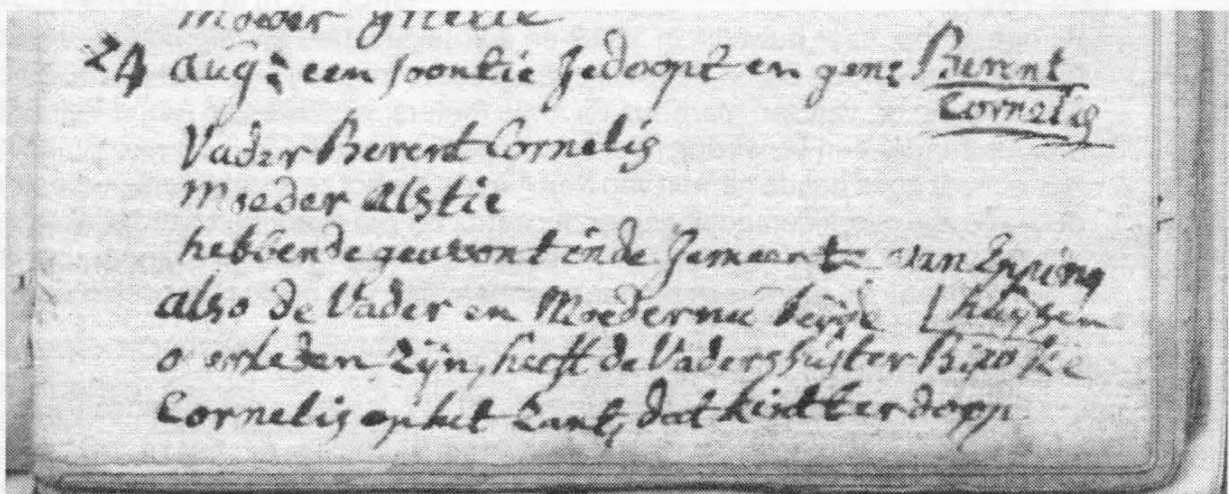 Moeder
24 Aug: een soontie gedoopt en gen: Berent
Cornelis
Vader Berent Cornelis
Moeder Alstie
hebbende gewont in de gemeert van Epping
also de Vader en Moeder nu beyde huysen
overleden zijn, heeft de Vaders suster
Cornelis op het Zant, dat kint ter doop